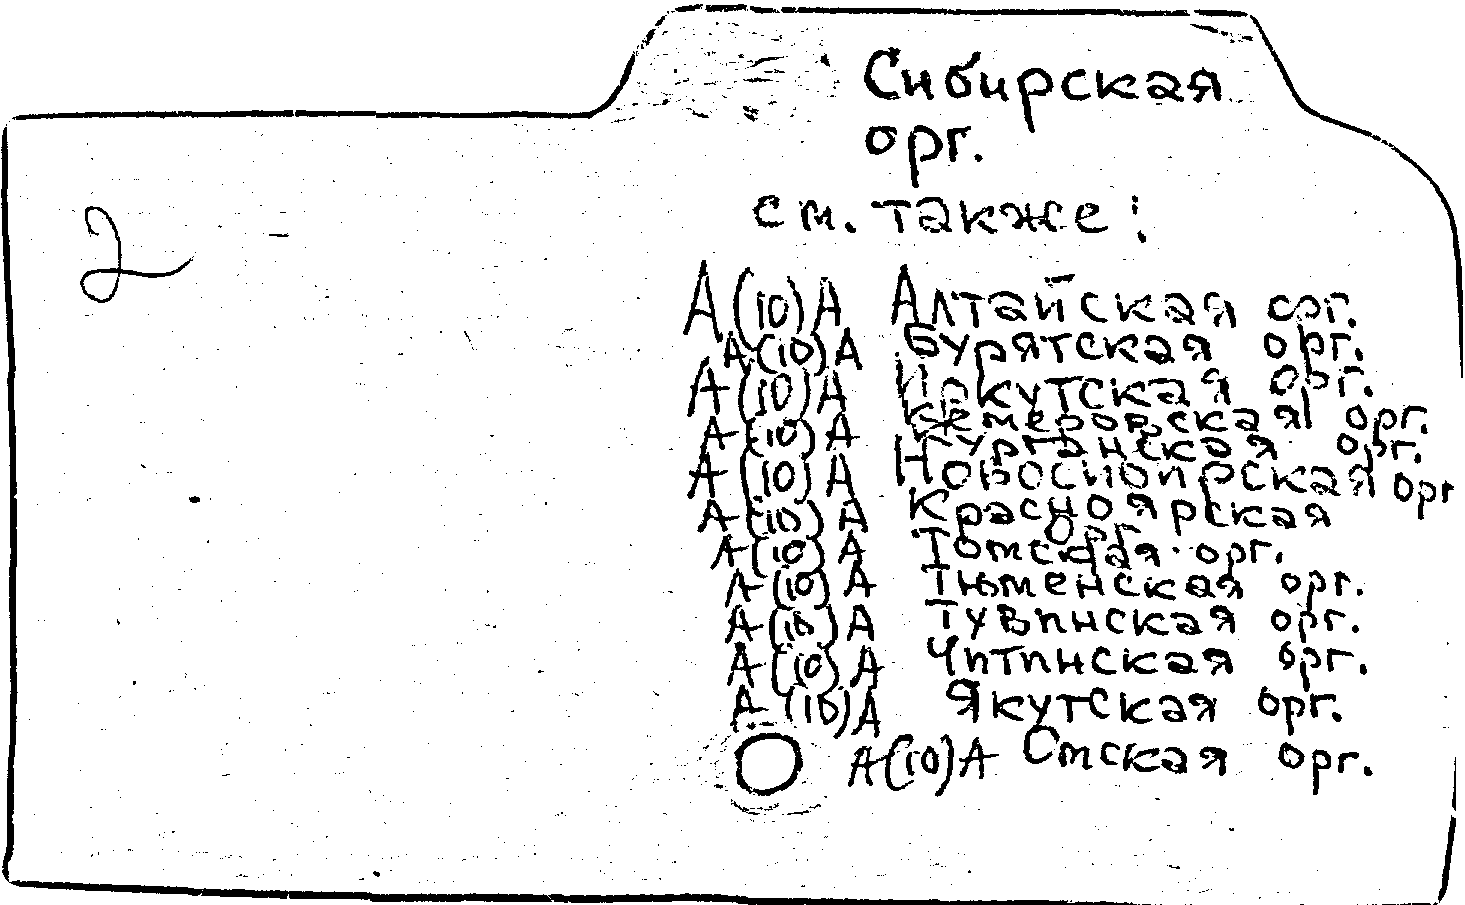 Сибирская
орг.
см. также:
2
А(10)А Алтайская орг.
А(10)А Бурятская орг.
А(10)А Иркутская орг.
А(10)А Кемеровская орг.
Курганская орг.
А(10)А Новосибирская орг
А(10)А Красноярская
орг.
А(10)А Томская орг.
А(10)А Тюменская орг.
А(10)А Тувинская орг.
А(10)А Читинская орг.
А(10)А Якутская орг.
А(10)А Омская орг.